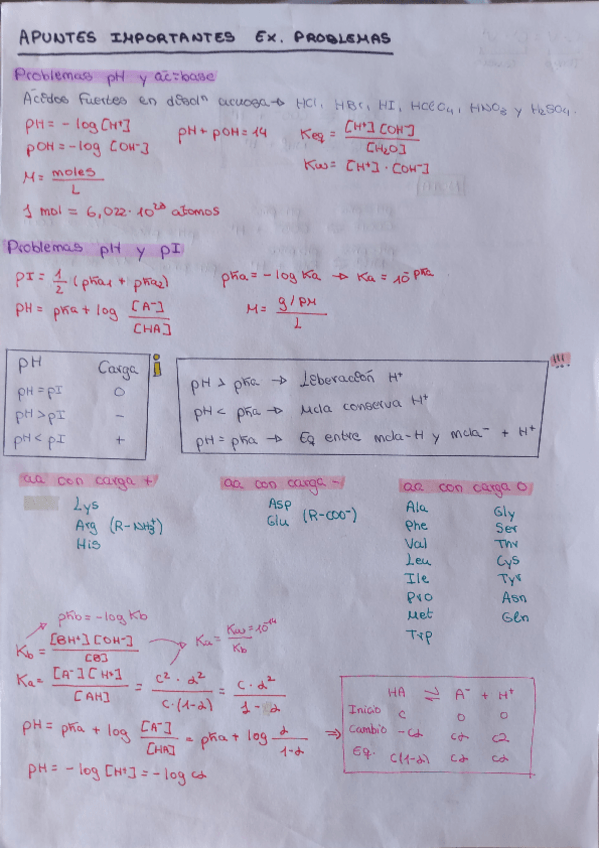 APUNTES IMPORTANTES EX. PROBLEMAS
Problemas pH y ác-base
Ácidos fuertes en disolⁿ acuosa → HCl, HBr, HI, HClO₄, HNO₃ y H₂SO₄.
pH = - log [H⁺]
pOH = - log [OH⁻]
pH + pOH = 14
Keq = [H⁺][OH⁻] / [H₂O]
Kw = [H⁺] · [OH⁻]
M = moles / L
1 mol = 6,022 · 10²³ átomos
Problemas pH y pI
pI = 1/2 (pKa₁ + pKa₂)
pKa = - log Ka → Ka = 10⁻ᵖᴷᵃ
pH = pKa + log [A⁻] / [HA]
M = g / PM / L
pH Carga
pH = pI 0
pH > pI -
pH < pI +
i
!!!
pH > pKa → Liberación H⁺
pH < pKa → Mcla conserva H⁺
pH = pKa → Eq entre mcla-H y mcla⁻ + H⁺
aa con carga +
Lys
Arg (R-NH₃⁺)
His
aa con carga -
Asp
Glu (R-COO⁻)
aa con carga 0
Ala Gly
Phe Ser
Val Thr
Leu Cys
Ile Tyr
Pro Asn
Met Gln
Trp
pKb = - log Kb
Kb = [BH⁺][OH⁻] / [B]
Ka = Kw = 10⁻¹⁴ / Kb
Ka = [A⁻][H⁺] / [AH] = c² · α² / c · (1-α) = c · α² / 1 - α
pH = pKa + log [A⁻] / [HA] = pKa + log α / 1-α ⇒
pH = - log [H⁺] = - log cα
HA ⇌ A⁻ + H⁺
Inicio c 0 0
Cambio -cα cα cα
Eq. c(1-α) cα cα